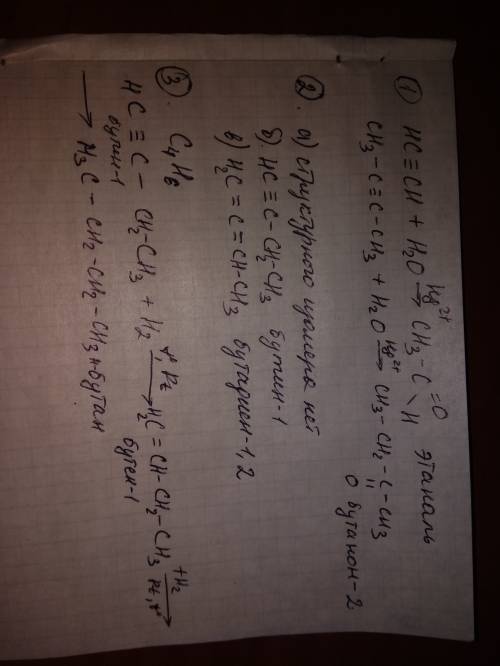 ① HC≡CH + H₂O →(Hg²⁺) CH₃-C(=O)H этаналь
CH₃-C≡C-CH₃ + H₂O →(Hg²⁺) CH₃-CH₂-C(=O)-CH₃ бутанон-2
②. а) структурного изомера нет
б). HC≡C-CH₂-CH₃ бутин-1
в) H₂C=C=CH-CH₃ бутадиен-1,2
③. C₄H₆
HC≡C-CH₂-CH₃ + H₂ →(t°, Pt) H₂C=CH-CH₂-CH₃ →(+H₂, Pt, t°)
бутин-1 бутен-1
→ H₃C-CH₂-CH₂-CH₃ н-бутан